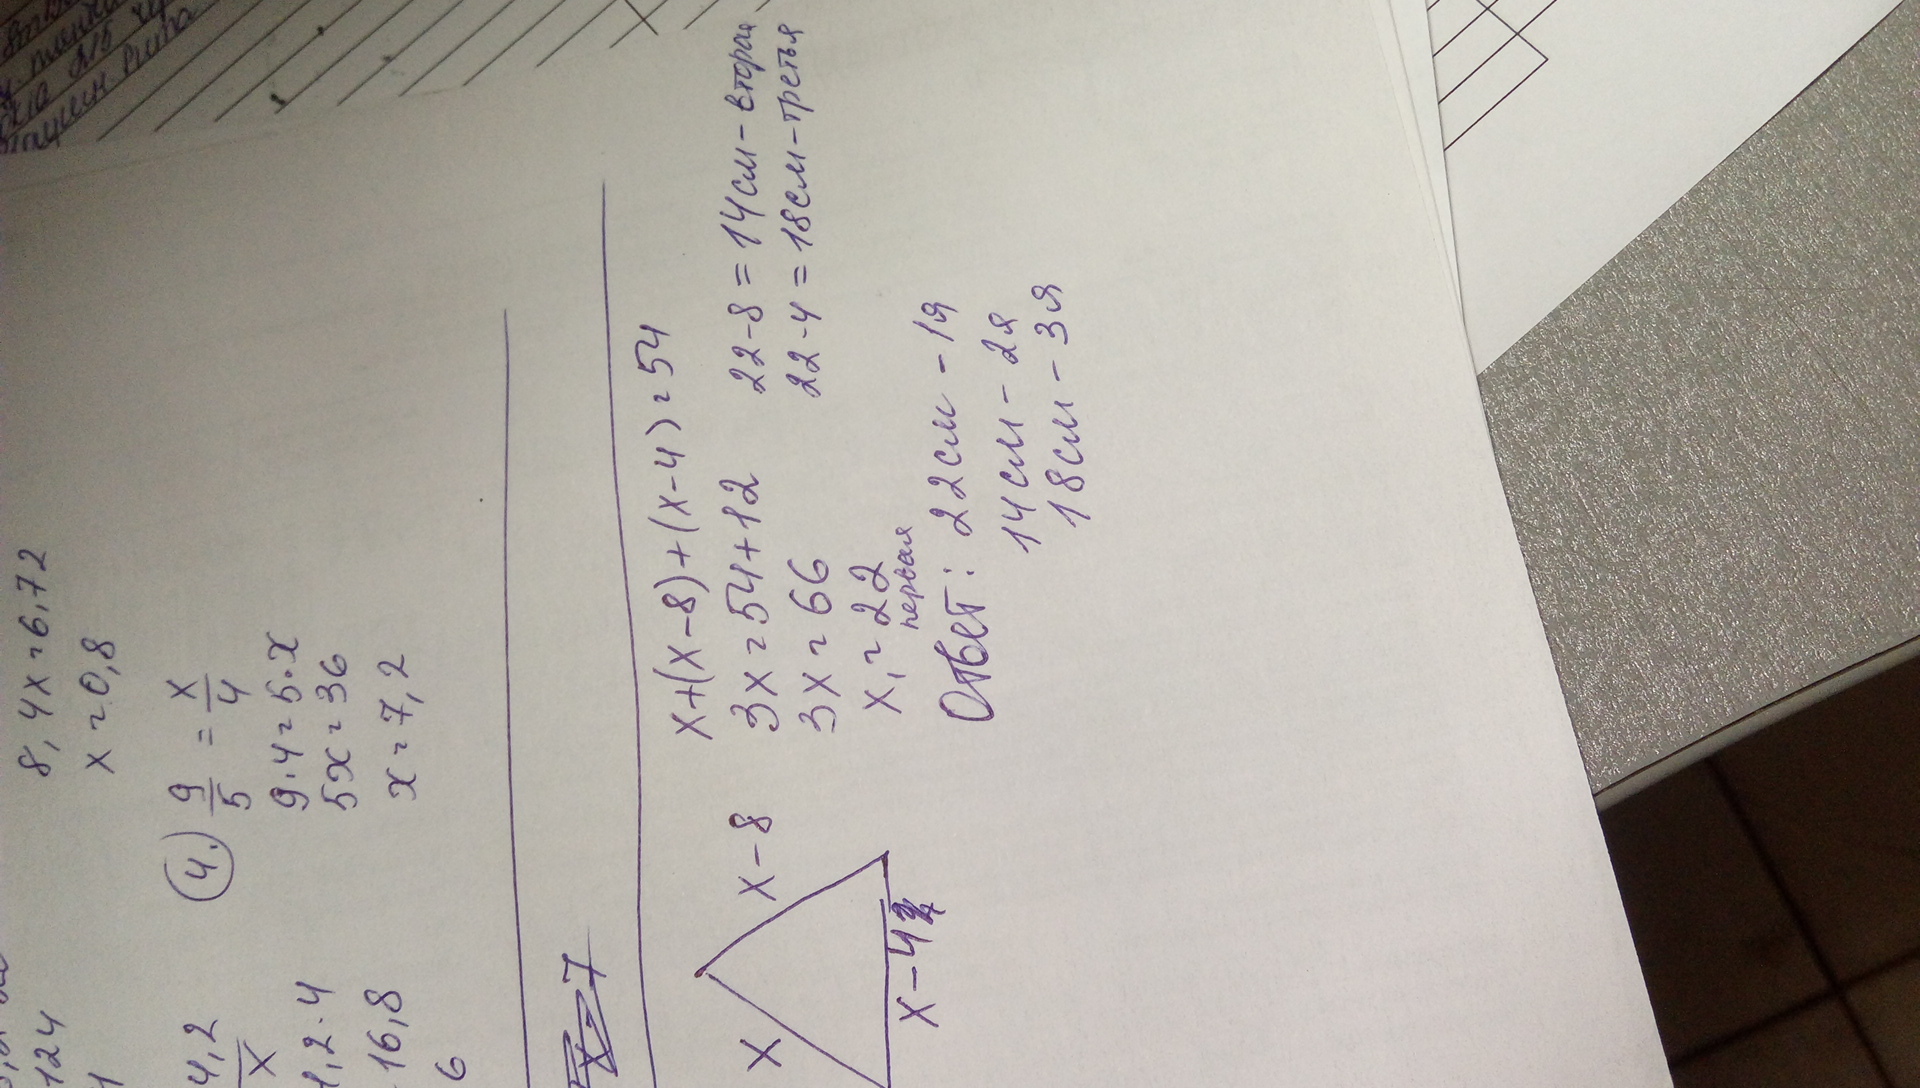 8,4x=6,72
x=0,8
124
4,2
x
1,2·4
16,8
6
4.) 9/5 = x/4
9·4=5·x
5x=36
x=7,2
7
x
x-8
x-4
x+(x-8)+(x-4)=54
3x=54+12
3x=66
x₁=22
первая
22-8=14см-вторая
22-4=18см-третья
Ответ: 22см-1я
14см-2я
18см-3я